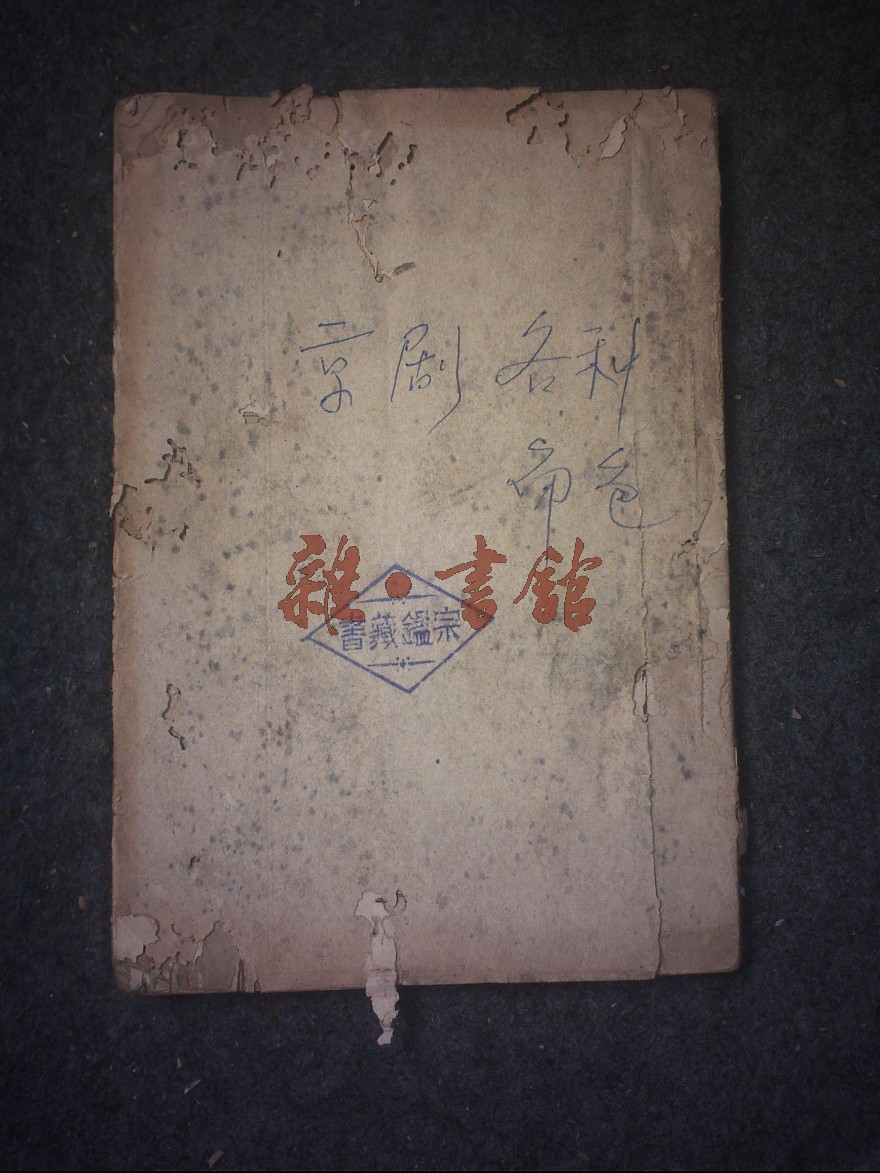 京剧 各科
色
雜·書館
宗鑑藏書